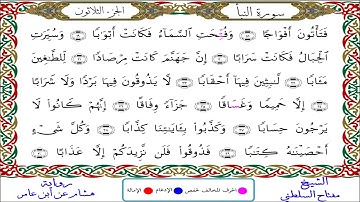 سورة النبأ
الجزء الثلاثون
فَتَأْتُونَ أَفْوَاجًا وَفُتِّحَتِ السَّمَاءُ فَكَانَتْ أَبْوَابًا وَسُيِّرَتِ
الْجِبَالُ فَكَانَتْ سَرَابًا إِنَّ جَهَنَّمَ كَانَتْ مِرْصَادًا لِلطَّاغِينَ
مَـَٔابًا لَّٰبِثِينَ فِيهَا أَحْقَابًا لَا يَذُوقُونَ فِيهَا بَرْدًا وَلَا شَرَابًا
إِلَّا حَمِيمًا وَغَسَاقًا جَزَاءً وِفَاقًا إِنَّهُمْ كَانُوا لَا
يَرْجُونَ حِسَابًا وَكَذَّبُوا بِـَٔايَٰتِنَا كِذَّابًا وَكُلَّ شَيْءٍ
أَحْصَيْنَٰهُ كِتَٰبًا فَذُوقُوا فَلَن نَّزِيدَكُمْ إِلَّا عَذَابًا
الشيخ
مفتاح السلطني
الحرف المخالف لحفص
الإدغام
الإمالة
رواية
هشام عن ابن عامر